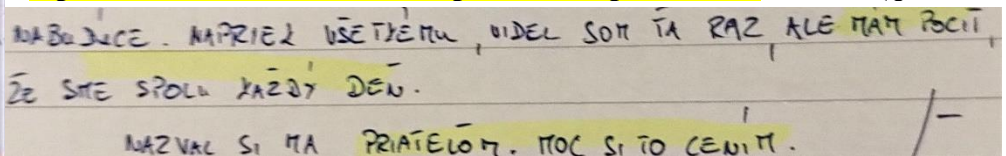 NABUDÚCE. NAPRIEK VŠETKÉMU, VIDEL SOM ŤA RAZ, ALE MÁM POCIT,
ŽE SME SPOLU KAŽDÝ DEŇ.
NAZVAL SI MA PRIATEĽOM. MOC SI TO CENÍM.